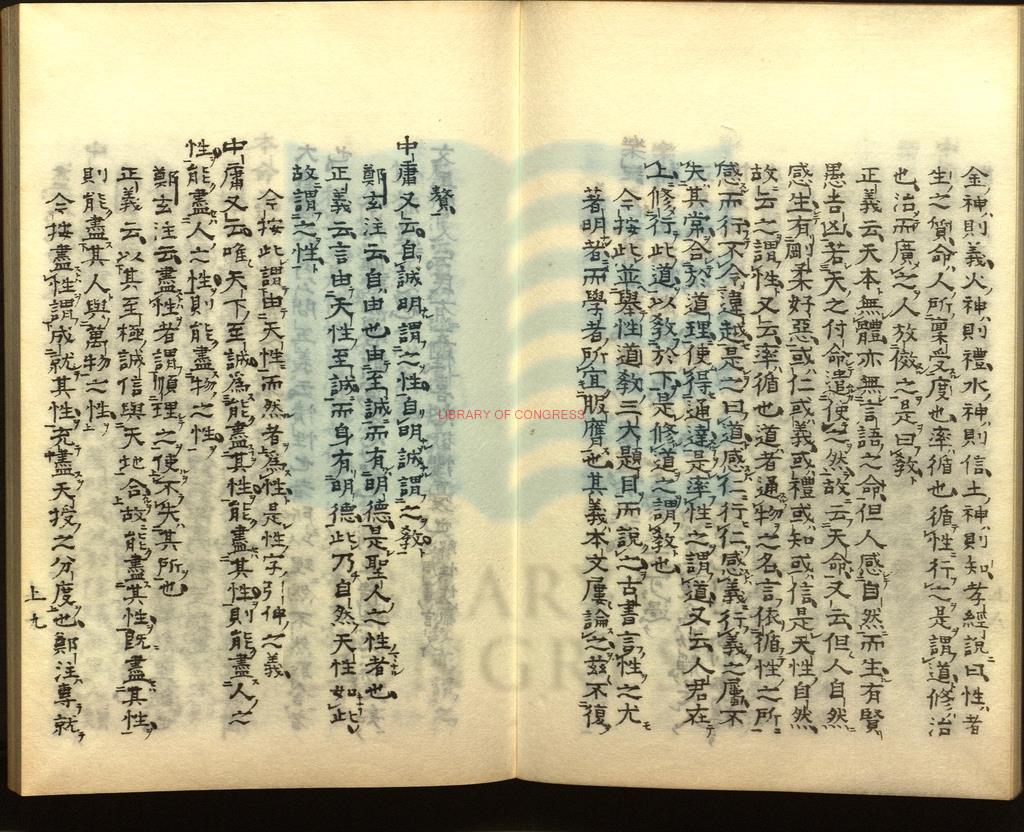 金神則義火神則禮水神則信土神則知孝經說曰性者
生之質命人所稟受度也率循也循性行之是謂道修治
也治而廣之人放傚之是曰敎
正義云天本無體亦無言語之命但人感自然而生有賢
愚吉凶若天之付命遣使之然故云天命又云但人自然
感生有剛柔好惡或仁或義或禮或知或信是天性自然
故云之謂性又云率循也道者通物之名言依循性之所
感而行不令違越是之曰道感仁行仁感義行義之屬不
失其常合於道理使得通達是率性之謂道又云人君在
上修行此道以敎於下是修道之謂敎也
今按此並舉性道敎三大題目而說之古書言性之尤
著明者而學者所宜服膺也其義本文屢論之茲不復
贅
中庸又云自誠明謂之性自明誠謂之敎
鄭玄注云自由也由至誠而有明德是聖人之性者也
正義云言由天性至誠而身有明德此乃自然天性如此
故謂之性
今按此謂由天性而然者爲性是性字引伸之義
中庸又云唯天下至誠爲能盡其性能盡其性則能盡人之
性能盡人之性則能盡物之性
鄭玄注云盡性者謂順理之使不失其所也
正義云以其至極誠信與天地合故能盡其性旣盡其性
則能盡其人與萬物之性
今按盡性謂成就其性充盡天授之分度也鄭注專就
上九
LIBRARY OF CONGRESS